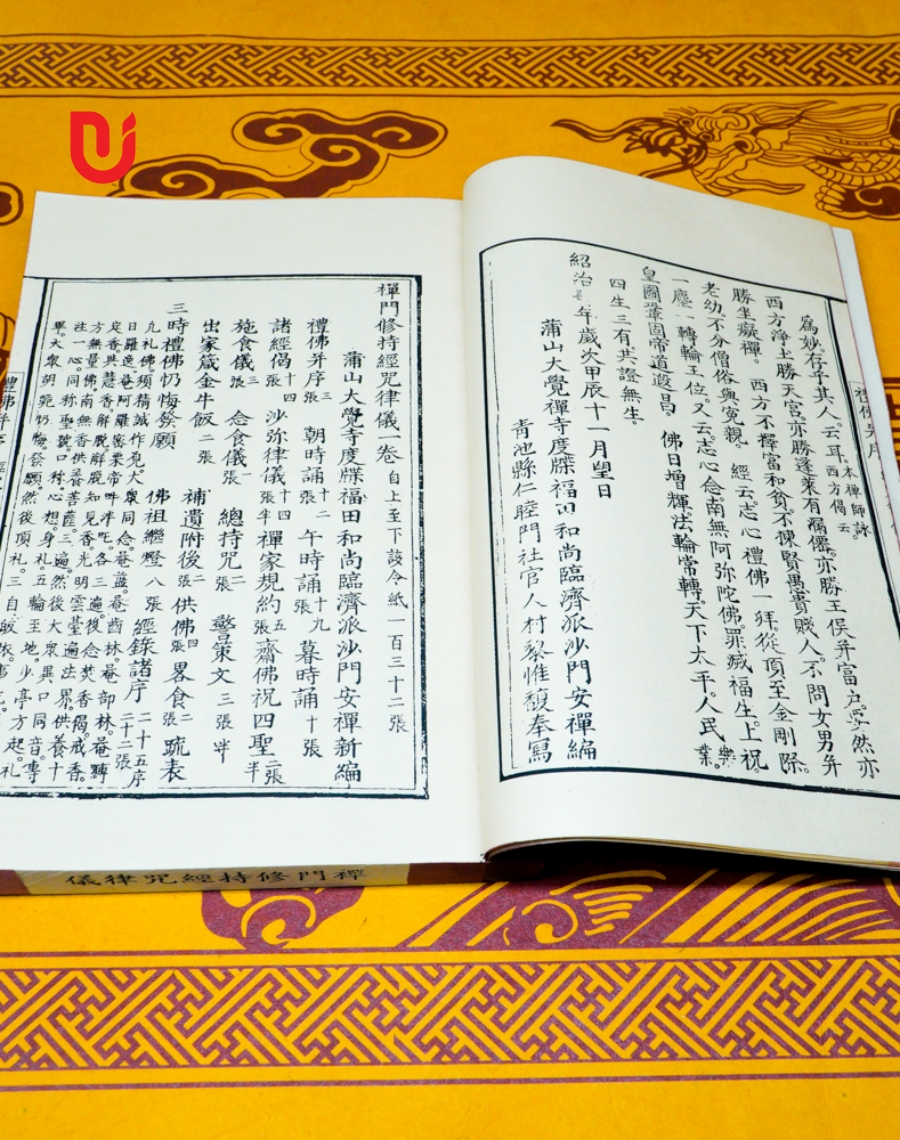 爲妙存乎其人。云耳。本禪師詠西方偈云
西方淨土勝天宮。亦勝蓬萊有漏儒。亦勝王侯并富 然亦
勝坐癡禪。 西方不擇富和貧。不揀賢愚貴賤人。不問女男并
老幼。不分僧俗與寃親。 經云。志心禮佛一拜。從頂至金剛際。
一塵一轉輪王位。又云志心念。南無阿弥陀佛。罪滅福生。上祝
皇圖鞏固帝道遐昌 佛日增輝。法輪常轉。天下太平。人民樂業。
四生三有。共證無生。
紹治 年歲次甲辰十一月望日
蒲山大覺禪寺度牒福田和尚臨濟派沙門安禪編
青池縣仁睦門社官人村黎惟馥奉寫
禪門修持經咒律儀一卷 自上至下該令紙一百三十二張
蒲山大覺寺度牒福田和尚臨濟派沙門安禪新編
禮佛并序三張 朝時誦十二張 午時誦十九張 暮時誦十張
諸經偈十四張 沙弥律儀十四張半 禪家規約五張 齋佛祝四聖二張半
施食儀三張 念食儀一張 總持咒二張 警策文三張半
出家箴金牛飯二張 補遺附後二張 供佛四張 畧食二張 疏表
佛祖繼燈八張 經錄諸序二十五序二十二張
三時禮佛懺悔發願
凡礼佛。須精誠作
方無量佛。南無香供養菩薩。三遍然後大眾異口同音。專
注一心。同称聖號。口称心想。身礼五輪至地。少亭方起。礼
畢。大眾胡跪懺悔。發願然後頂礼。三自皈依。
禪門修持經咒律儀